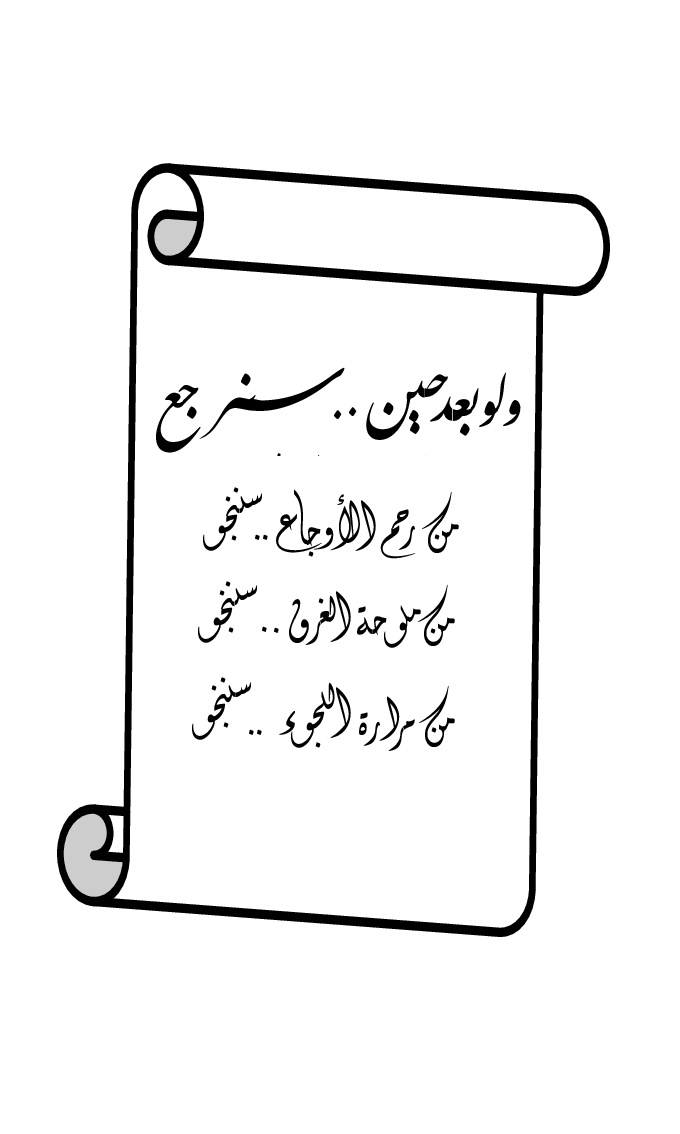 ولو بعد حين .. سنرجع
من رحم الأوجاع .. سننجو
من ملوحة الغرق .. سننجو
من مرارة اللجوء .. سننجو